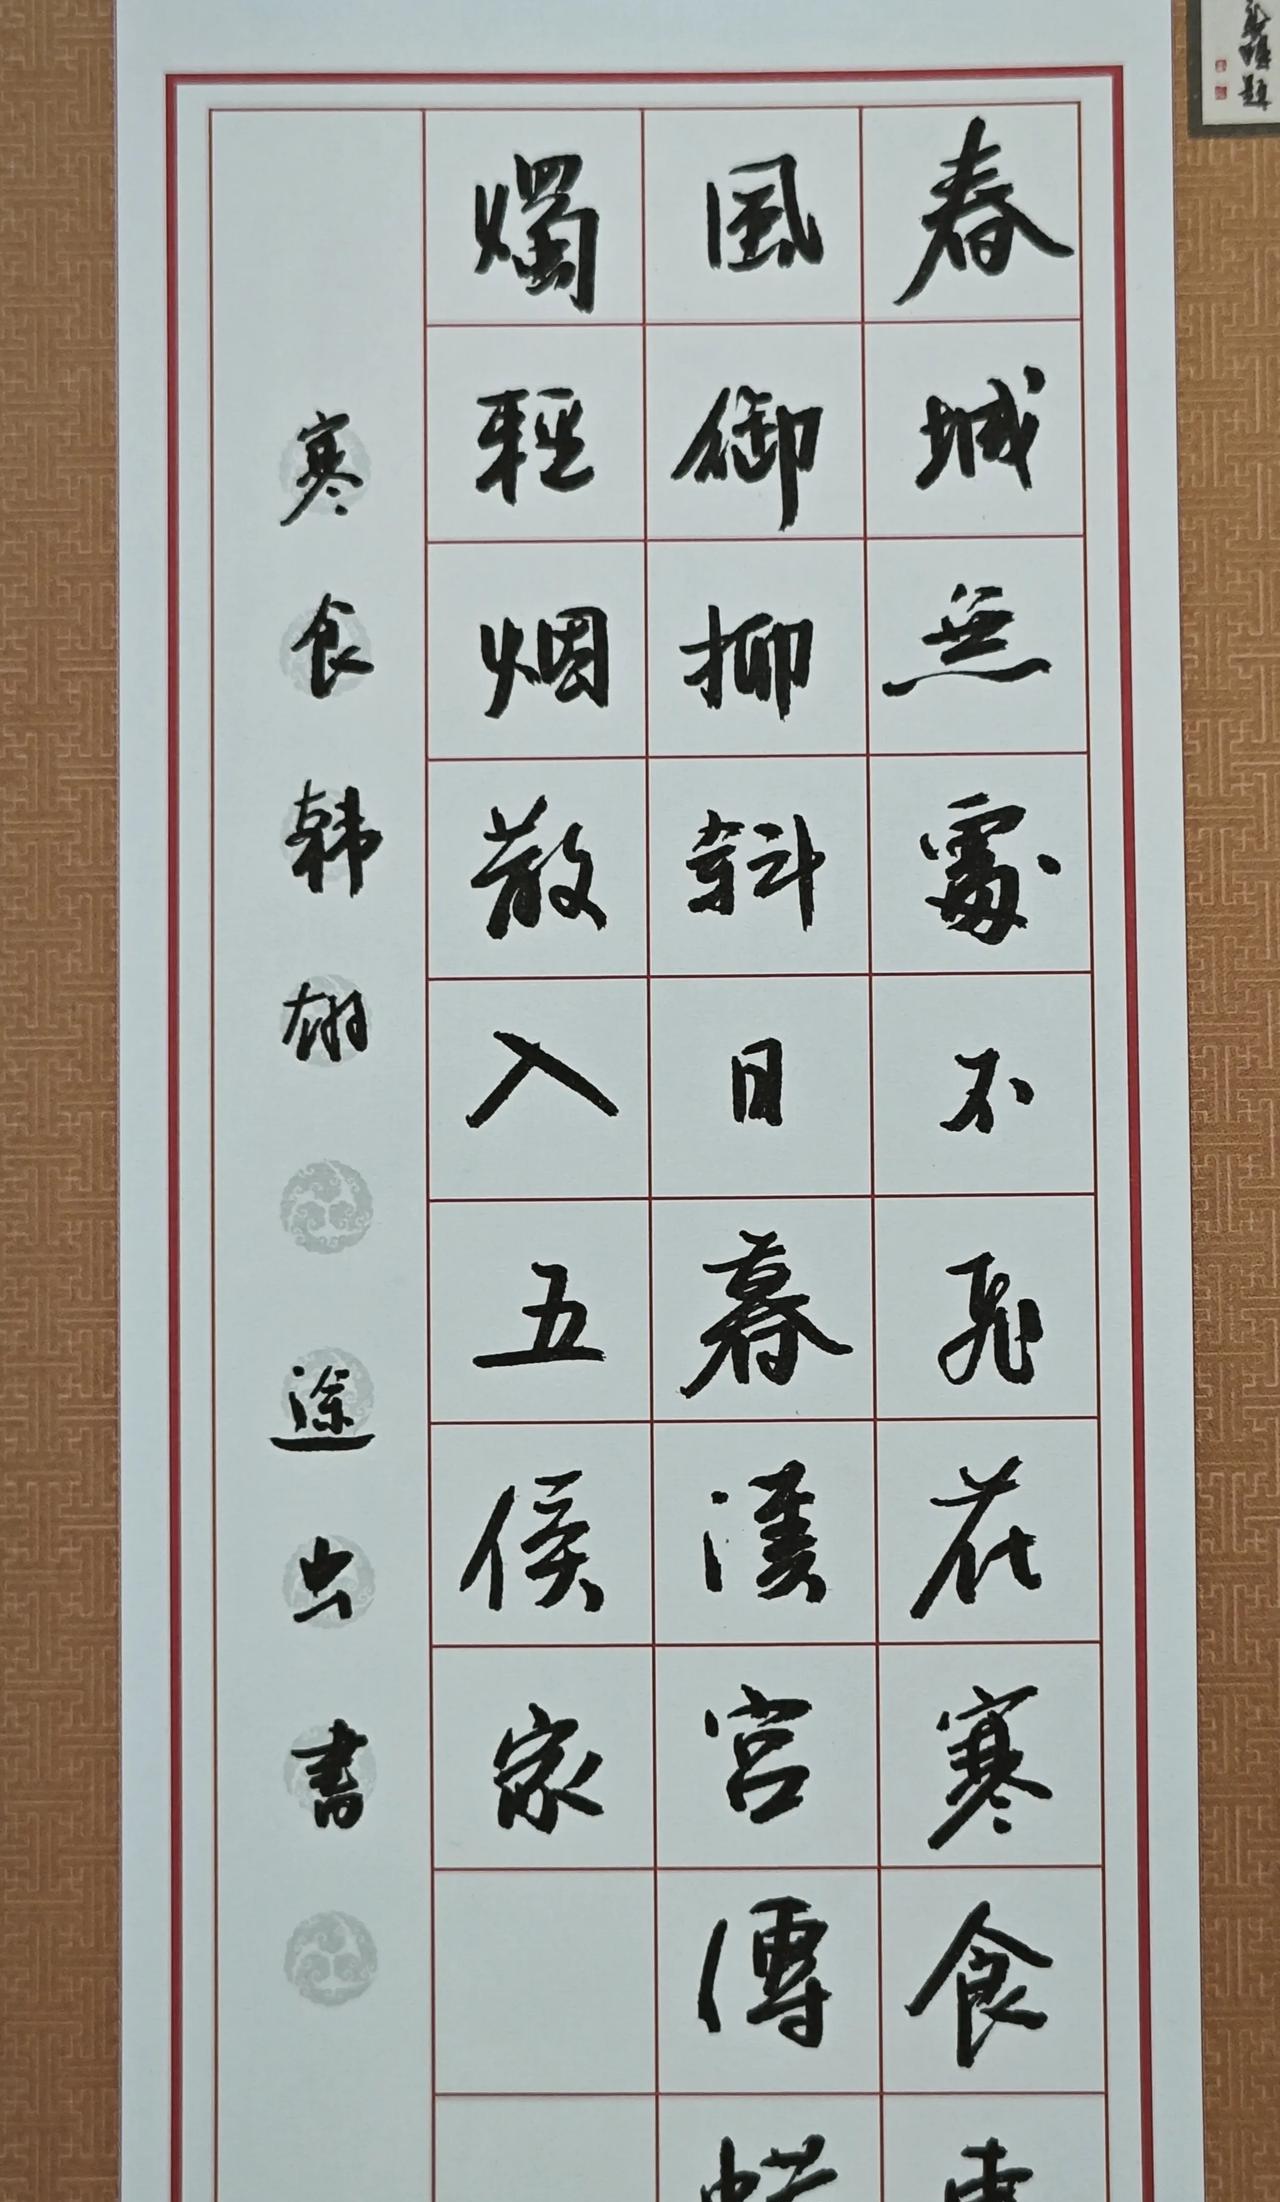 春城無處不飛花寒食東
風御柳斜日暮漢宮傳蜡
燭輕烟散入五侯家
寒食韩翃 塗虫書
題